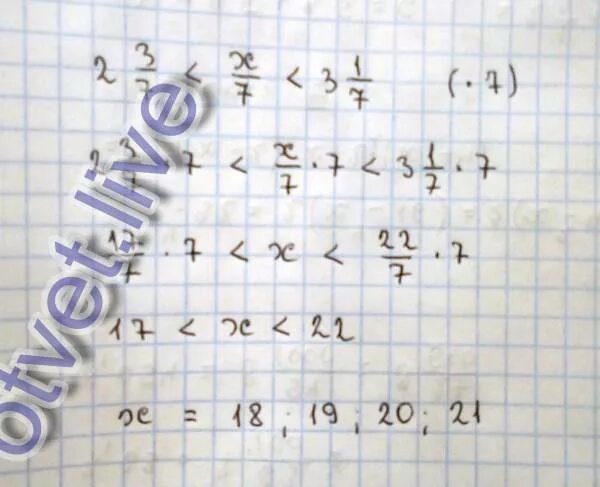 2 3/7 < x/7 < 3 1/7 (· 7)
2 3/7 · 7 < x/7 · 7 < 3 1/7 · 7
17/7 · 7 < x < 22/7 · 7
17 < x < 22
x = 18 ; 19 ; 20 ; 21
otvet.live